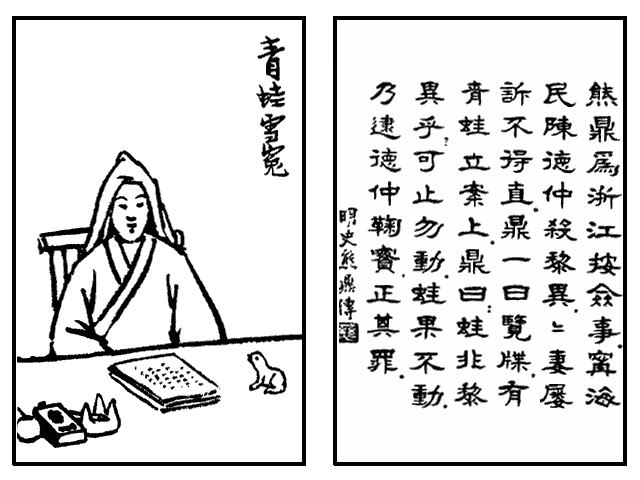 青蛙雪冤
熊鼎為浙江按僉事寧海
民陳德仲殺黎異。〻妻屢
訴不得直。鼎一日覽牒。有
青蛙立案上。鼎曰：蛙非黎
異乎？可止勿動。蛙果不動。
乃逮德仲鞫實。正其罪。
明史熊鼎傳